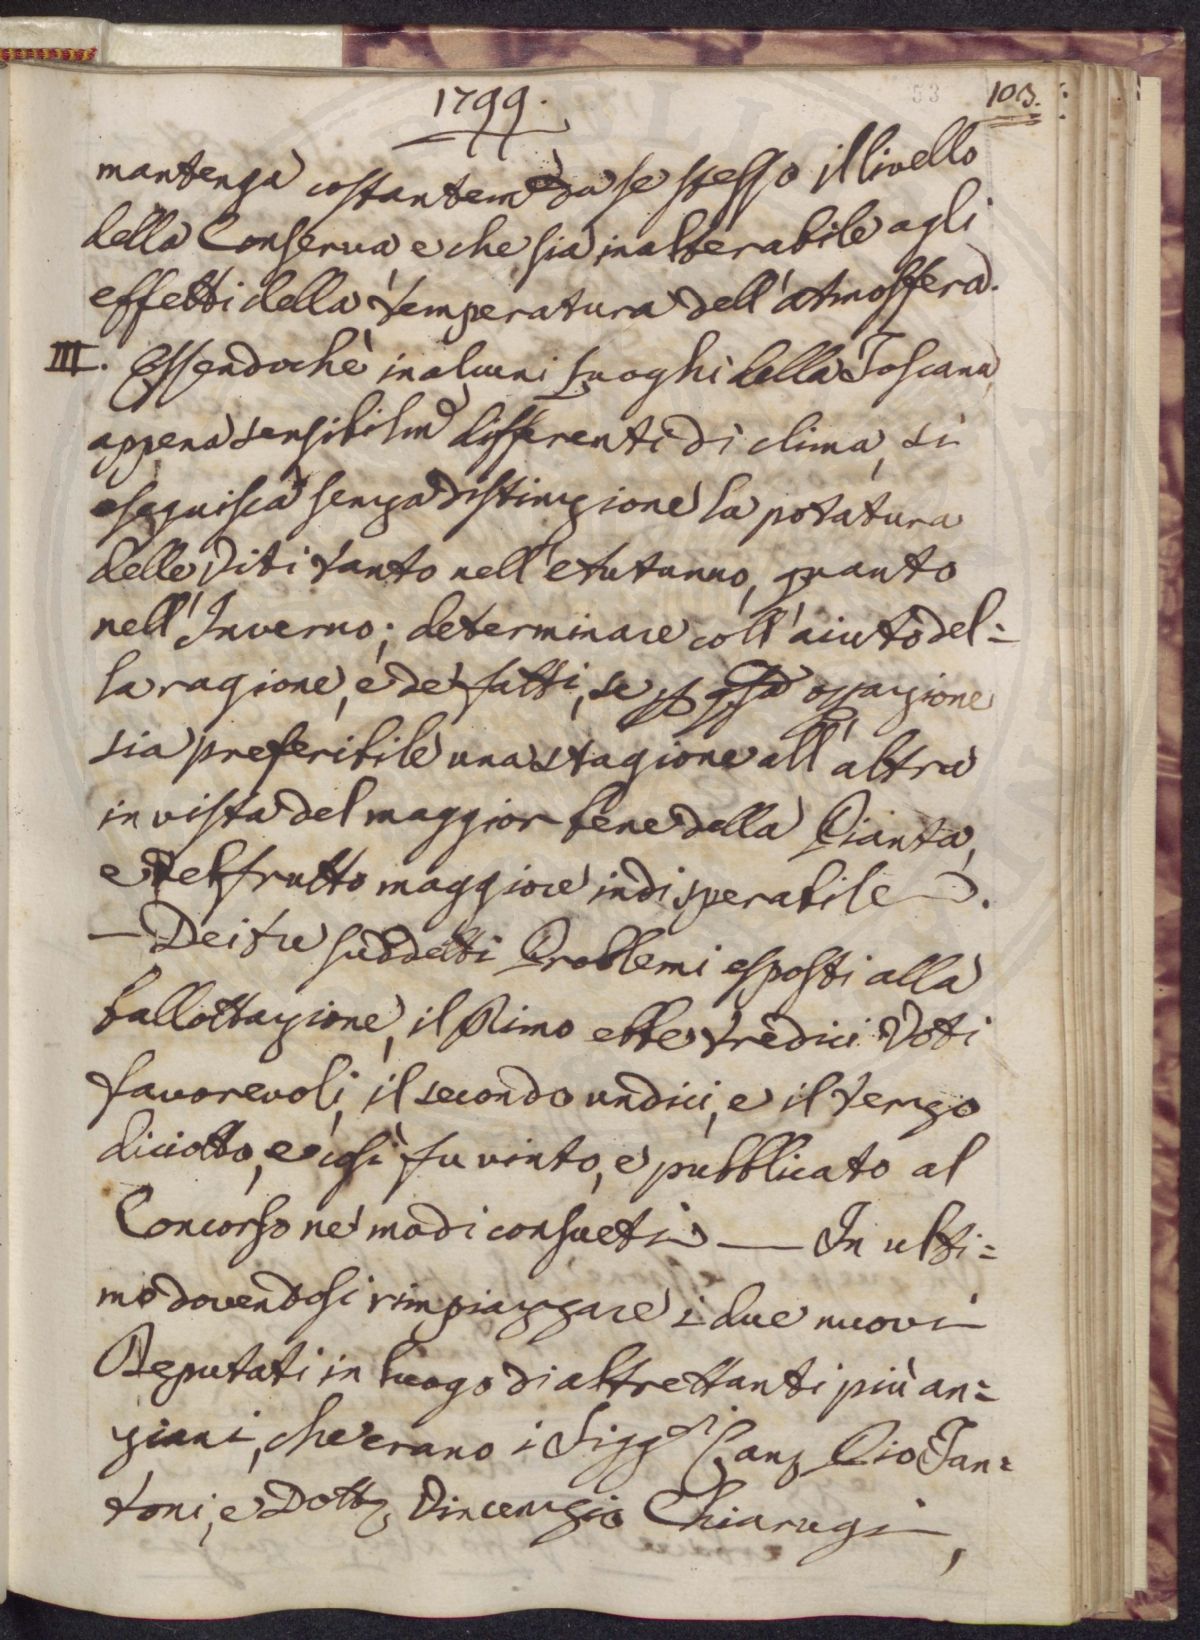 1799.
53 103.
mantenga costantem.e da se stesso il livello
della Conserva e che sia inalterabile agli
effetti della temperatura dell'atmosfera.
III. Essendochè in alcuni Luoghi della Toscana
appena sensibilm.e differenti di clima, si
eseguisca senza distinzione la potatura
delle Viti tanto nell'Autunno, quanto
nell'Inverno; determinare coll'aiuto del=
la ragione, e de' fatti, se p. q.sta operazione
sia preferibile una stagione all'altra
in vista del maggior bene della Pianta,
e del frutto maggiore indisperabile.
— Dei tre suddetti Problemi esposti alla
ballottazione, il Primo ebbe tredici Voti
favorevoli, il secondo undici, e il terzo
diciotto, e così fu vinto, e pubblicato al
Concorso ne' modi consueti — In ulti=
mo dovendosi rimpiazzare i due nuovi
Deputati in luogo di altrettanti più an=
ziani, che erano i Sigg.ri Canz. Pio Fan=
toni, e Dott. Vincenzio Chiarugi,